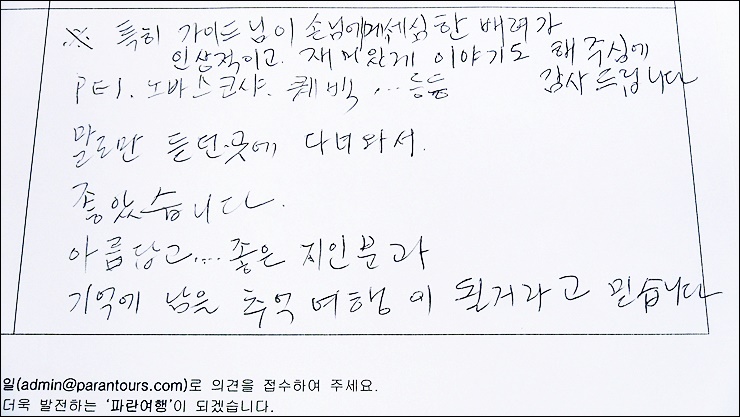 ※ 특히 가이드님이 손님에게 세심한 배려가
인상적이고. 재미있게 이야기도 해 주심에
감사 드립니다
PEI. 노바스코샤. 퀘백 ... 등등
말로만 듣던 곳에 다녀와서.
좋았습니다.
아름답고.... 좋은 지인분과
기억에 남은 추억여행이 될거라고 믿습니다
일(admin@parantours.com)로 의견을 접수하여 주세요.
더욱 발전하는 '파란여행'이 되겠습니다.